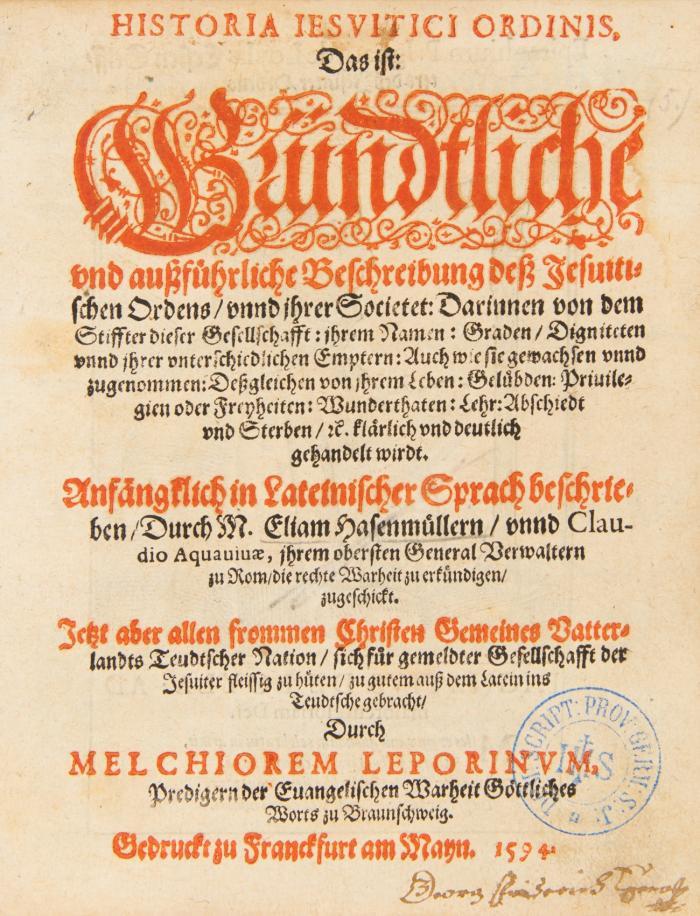 HISTORIA IESVITICI ORDINIS,
Das ist:
Gründtliche
vnd außführliche Beschreibung deß Jesuiti-
schen Ordens / vnnd jhrer Societet: Darinnen von dem
Stiffter dieser Gesellschafft: jhrem Namen: Graden / Digniteten
vnnd jhrer vnterschiedlichen Emptern: Auch wie sie gewachsen vnnd
zugenommen: Deßgleichen von jhrem Leben: Gelübden: Priuile-
gien oder Freyheiten: Wunderthaten: Lehr: Abschiedt
vnd Sterben / ꝛc. klärlich vnd deutlich
gehandelt wirdt.
Anfängklich in Lateinischer Sprach beschrie-
ben / Durch M. Eliam Hasenmüllern / vnnd Clau-
dio Aquauiuæ, jhrem obersten General Verwaltern
zu Rom / die rechte Warheit zu erkündigen /
zugeschickt.
Jetzt aber allen frommen Christen Gemeines Vatter-
landts Teudtscher Nation / sich für gemeldter Gesellschafft der
Jesuiter fleissig zu hüten / zu gutem auß dem Latein ins
Teudtsche gebracht /
Durch
MELCHIOREM LEPORINVM,
Predigern der Euangelischen Warheit Göttliches
Worts zu Braunschweig.
Gedruckt zu Franckfurt am Mayn. 1594.
SCRIPT. PROV. GERM. S. J.
IHS
Georg Friderich